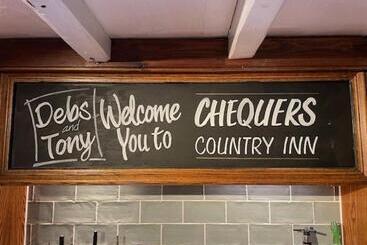 Debs
and
Tony
Welcome
You to
CHEQUERS
COUNTRY INN